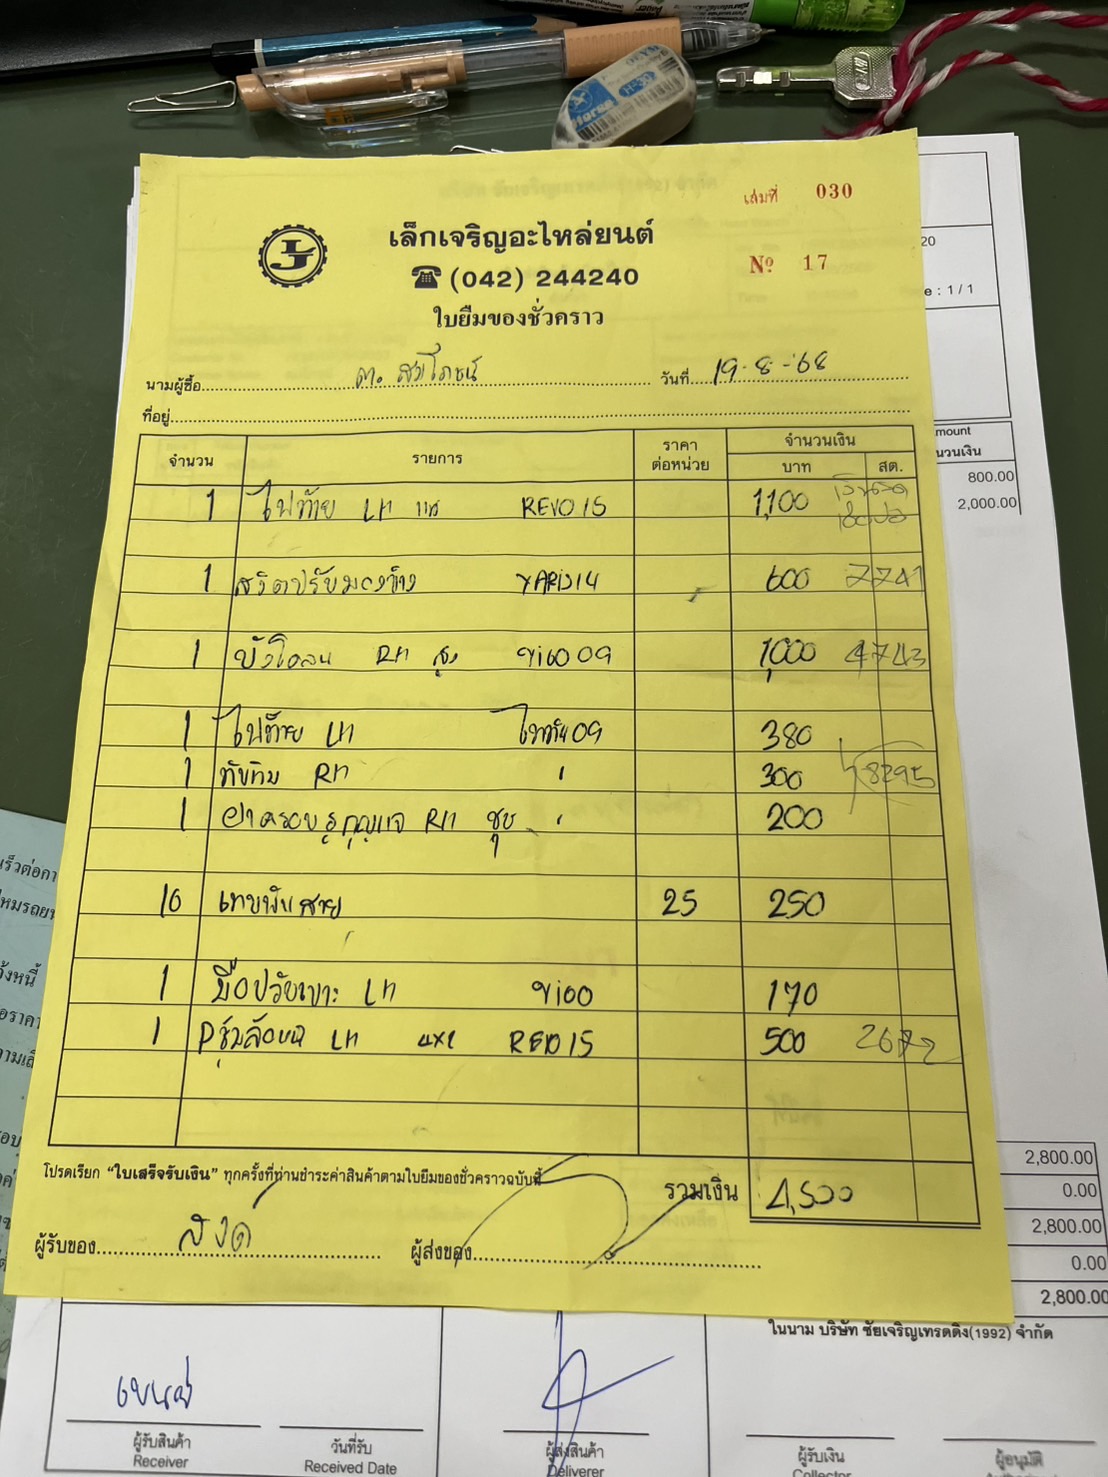 เล่มที่ 030
เล็กเจริญอะไหล่ยนต์
(042) 244240
Nº 17
ใบยืมของชั่วคราว
นามผู้ซื้อ วันที่ 19-8-68
ที่อยู่
จำนวน รายการ ราคาต่อหน่วย จำนวนเงิน
บาท สต.
1 ไฟท้าย LH แท้ REVO15 1,100
1 สวิตปรับมองข้าง YARIS14 600 7741
1 บังโคลน RH สูง วีโก้09 1,000 4743
1 ไฟท้าย LH ไททัน09 380
1 ทับทิม RH " 300 8295
1 ฝาครอบรูกุญแจ RH ชุบ " 200
10 เทปพันสาย 25 250
1 มือปรับเบาะ LH วีโก้ 170
1 Pซุ้มล้อหน้า LH 4x2 REVO15 500 2672
โปรดเรียก “ใบเสร็จรับเงิน” ทุกครั้งที่ท่านชำระค่าสินค้าตามใบยืมของชั่วคราวฉบับนี้
รวมเงิน 4,500
ผู้รับของ ผู้ส่งของ
20
: 1 / 1
mount
800.00
2,000.00
2,800.00
0.00
2,800.00
0.00
2,800.00
ในนาม บริษัท ชัยเจริญเทรดดิ้ง(1992) จำกัด
ผู้รับสินค้า วันที่รับ ผู้ส่งสินค้า ผู้รับเงิน ผู้อนุมัติ
Receiver Received Date Deliverer Collector